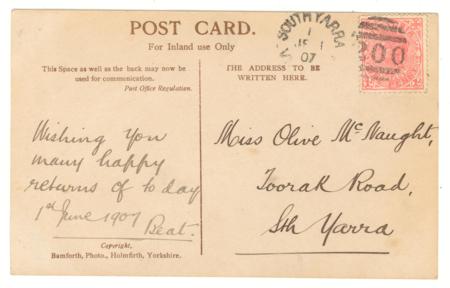 POST CARD.
For Inland use Only
This Space as well as the back may now be
used for communication.
Post Office Regulation.
THE ADDRESS TO BE
WRITTEN HERE.
SOUTH YARRA
1
07
200
Wishing you
many happy
returns of to day
1st June 1907
Beat.
Miss Olive McNaught,
Toorak Road,
Sth Yarra
Copyright,
Bamforth, Photo., Holmfirth, Yorkshire.